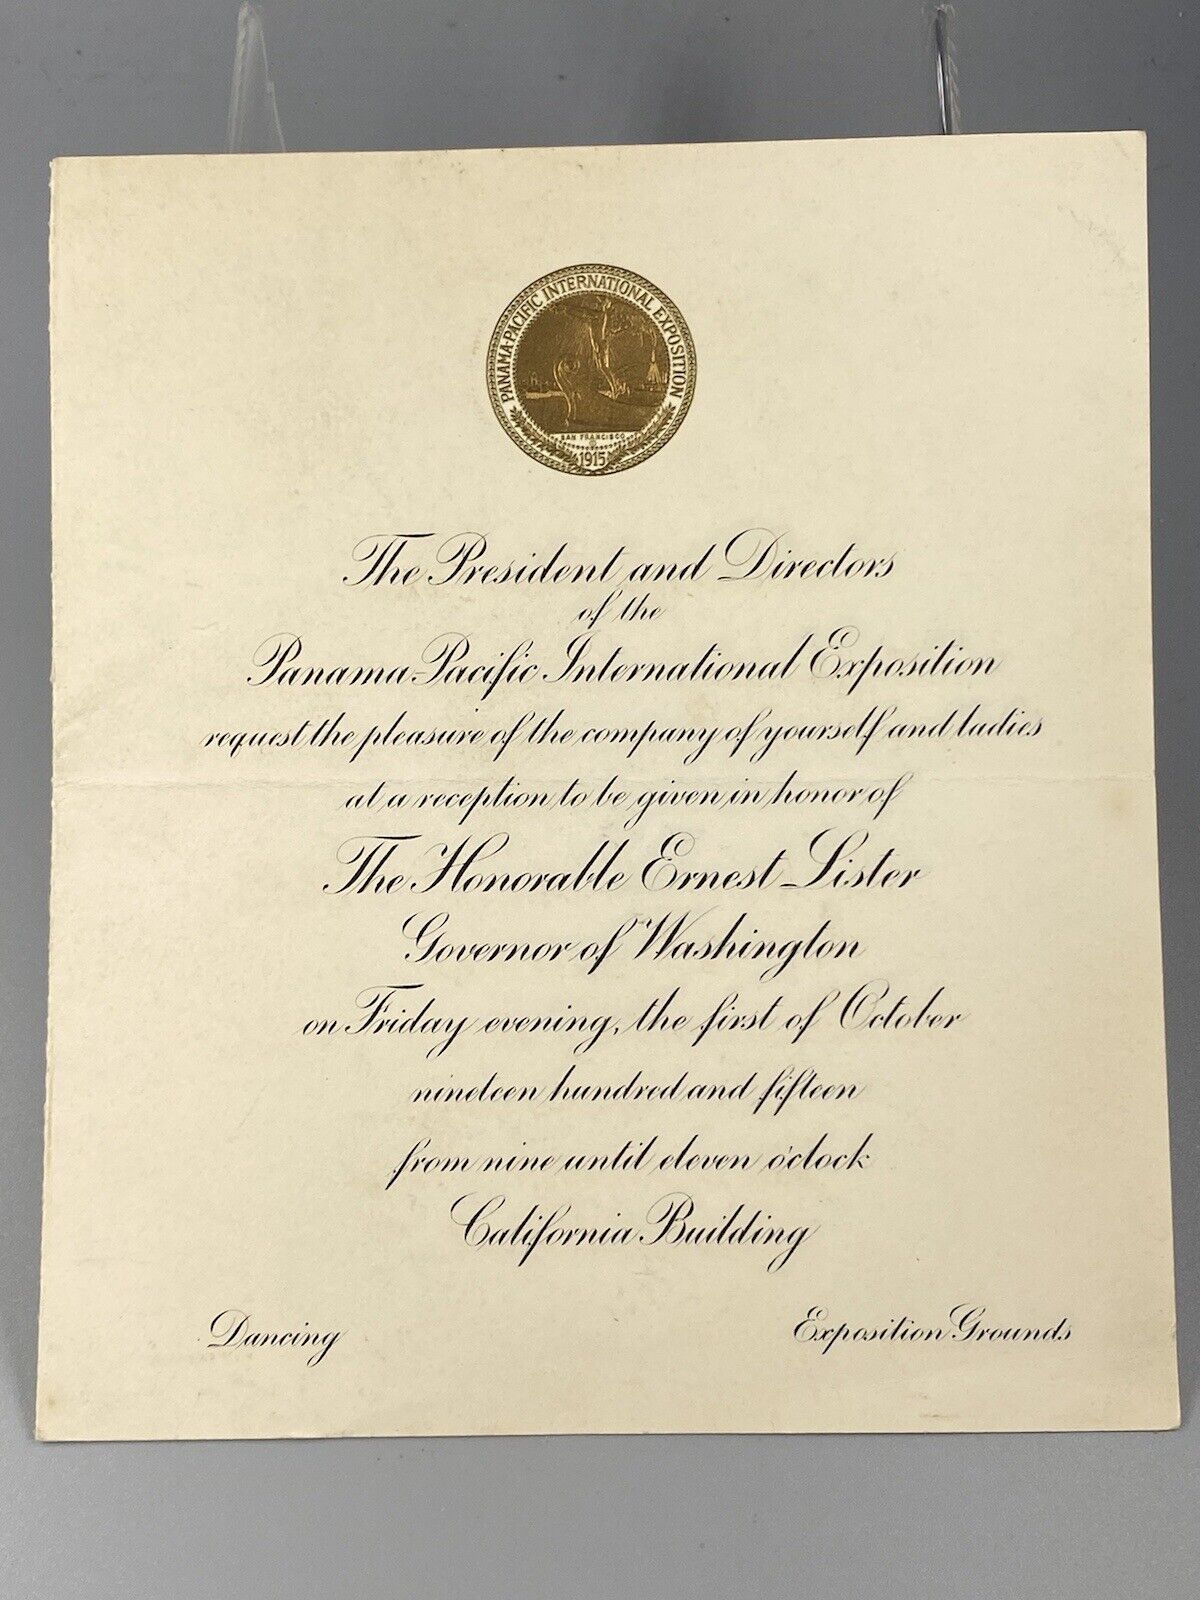 PANAMA-PACIFIC INTERNATIONAL EXPOSITION
SAN FRANCISCO
1915
The President and Directors
of the
Panama-Pacific International Exposition
request the pleasure of the company of yourself and ladies
at a reception to be given in honor of
The Honorable Ernest Lister
Governor of Washington
on Friday evening, the first of October
nineteen hundred and fifteen
from nine until eleven o'clock
California Building
Dancing
Exposition Grounds